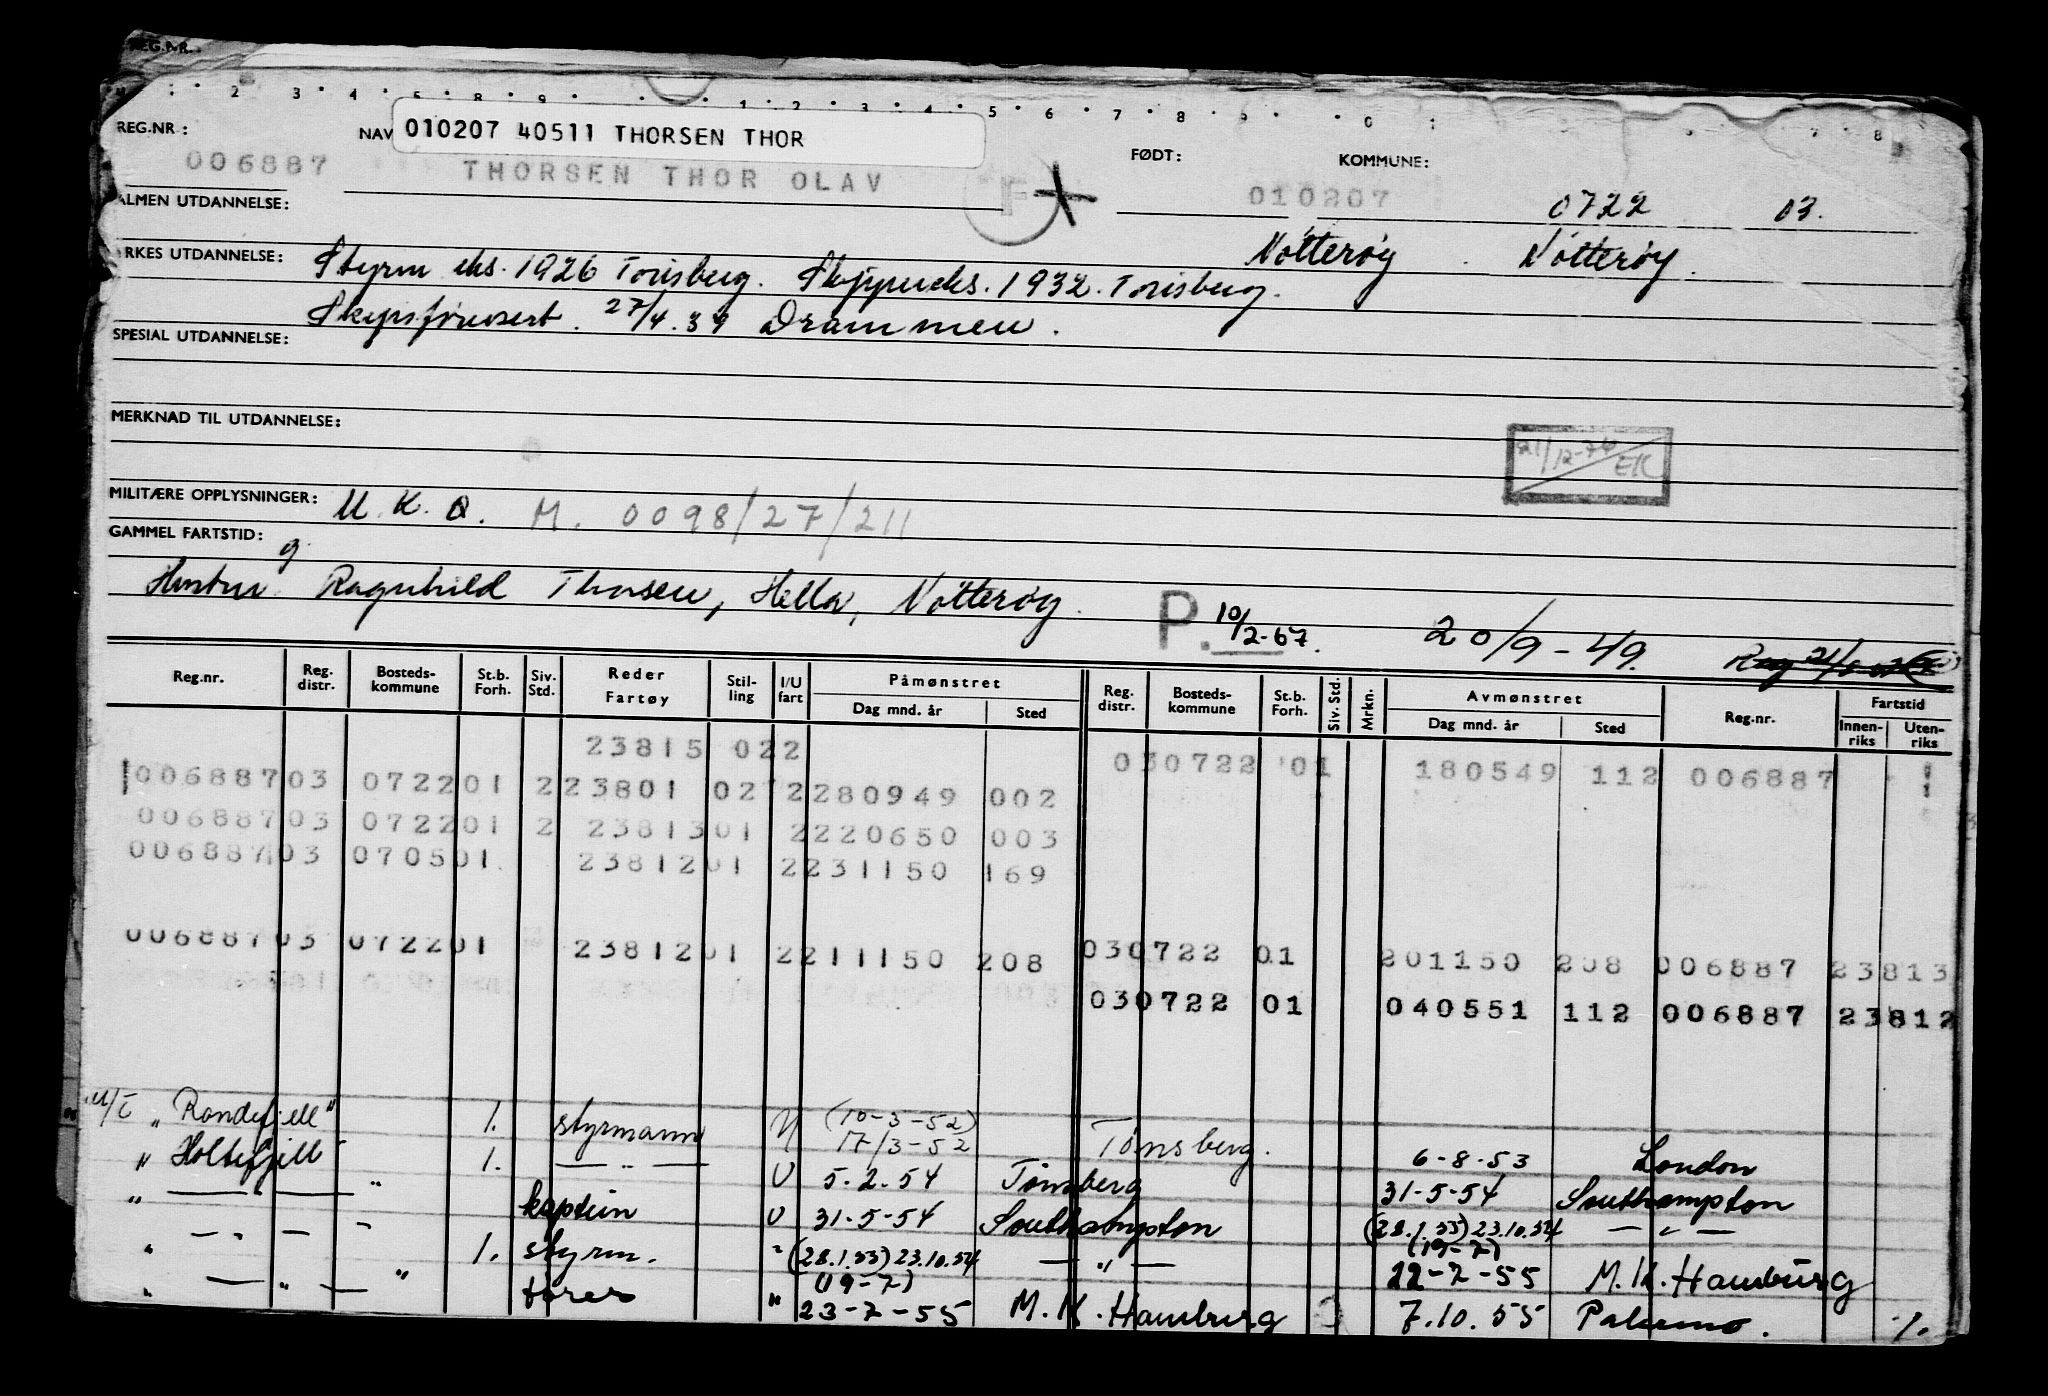 REG.NR.
2 3 4 5 8 9 1 2 3 4 5 6 7 8 9 0 7 8
REG.NR.: NAV 010207 40511 THORSEN THOR FØDT: KOMMUNE:
006887 THORSEN THOR OLAV F 010207 0722 03.
ALMEN UTDANNELSE:
Nötteröy Nötteröy.
RKES UTDANNELSE: Styrm eks. 1926 Tønsberg. Skippereks. 1932. Tønsberg.
Skipsførersert. 27/4.39 Drammen.
SPESIAL UTDANNELSE:
MERKNAD TIL UTDANNELSE:
21/12-74 EK
MILITÆRE OPPLYSNINGER: U.K.Q. M. 0098/27/211
GAMMEL FARTSTID:
g.
Hustru Ragnhild Thorsen, Hella, Nötteröy. P. 10/2-67. 20/9-49.
Reg.nr. Reg. distr. Bosteds-kommune St.b. Forh. Siv. Std. Reder Fartøy Stil-ling I/U fart Påmønstret Dag mnd. år Sted Reg. distr. Bosteds-kommune St.b. Forh. Siv. Std. Mrkn. Avmønstret Dag mnd. år Sted Reg.nr. Fartstid Innen-riks Uten-riks
23815 022 030722 01 180549 112 006887
006887 03 0722 01 2 23801 02 2 280949 002
006887 03 0722 01 2 23813 01 2 220650 003
006887 03 0705 01 23812 01 2 231150 169
006887 03 0722 01 23812 01 2 211150 208 030722 01 201150 208 006887 23813
030722 01 040551 112 006887 23812
M/T "Rondefjell" 1. styrmann U (10-3-52) 17/3-52 Tønsberg. 6-8-53 London
" Holtefjell 1. — " — U 5.2.54 Tønsberg 31-5-54 Southampton
" — " — " kaptein U 31-5-54 Southampton (28.1.55) 23.10.54 — " —
" — " — " 1. styrm. " (28.1.55) 23.10.54 — " — (19-7) 22-7-55 M.K. Hamburg
" — " — " fører " (19-7) 23-7-55 M.K. Hamburg 7.10.55 Palermo. %